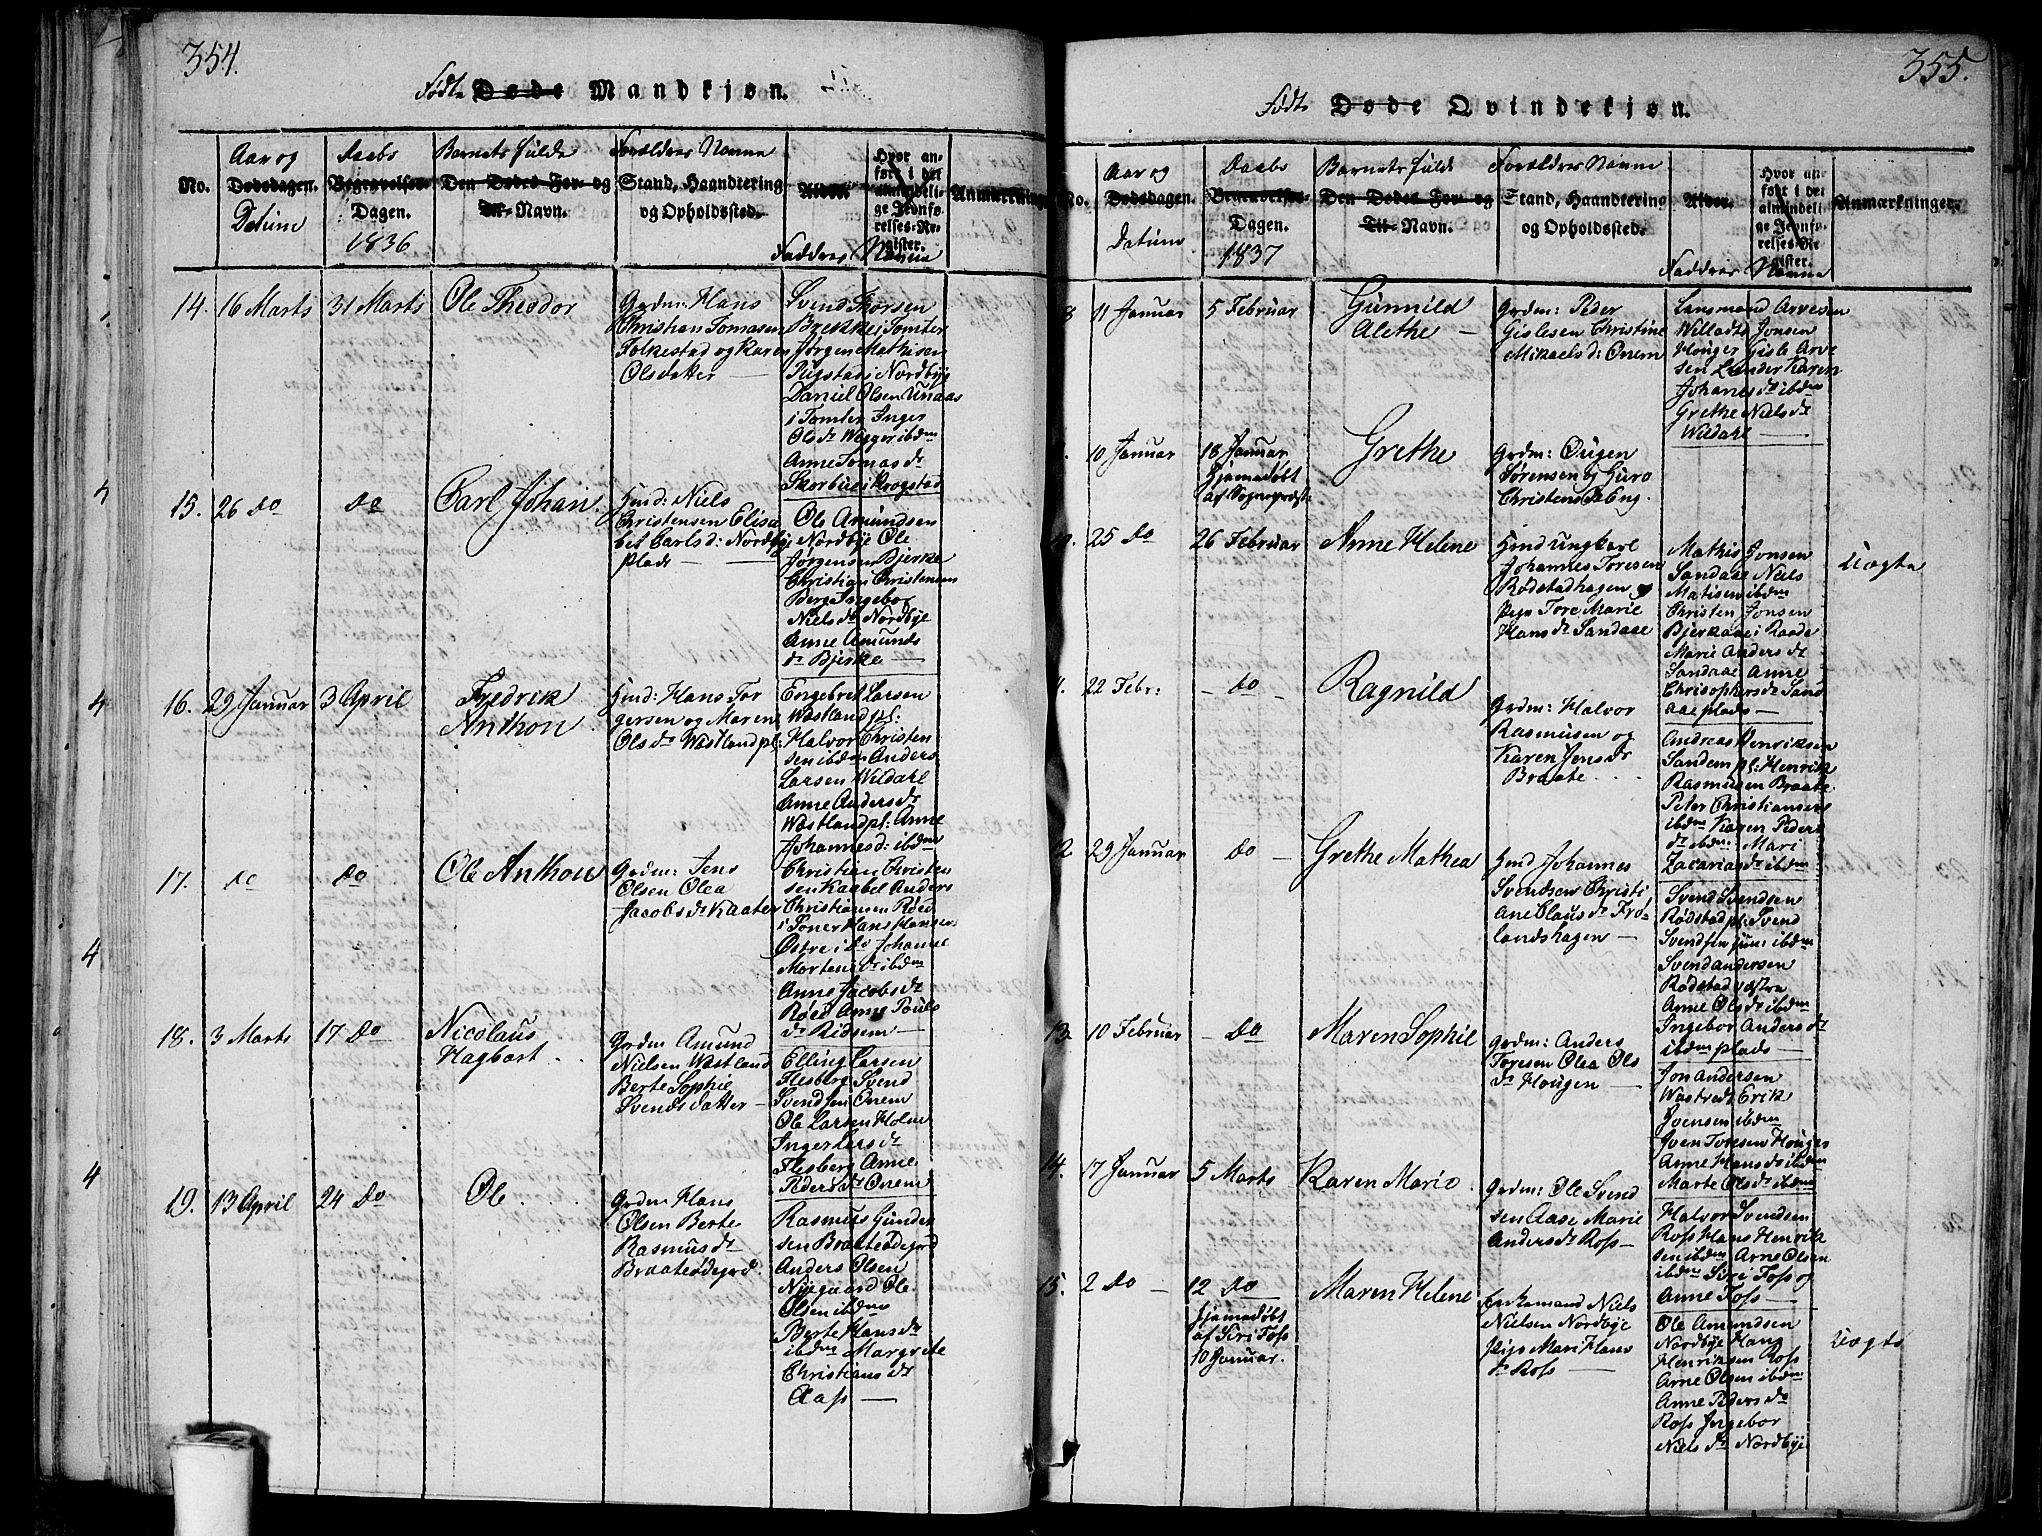 354.
Født Døde Mandkjøn.
No.
Aar og
Dødsdagen.
Datum
Daabs
Begravelses-
Dagen.
1836
Barnets fulde
Den Dødes For- og
Til-Navn.
Forældres Navne
Stand, Haandtering
og Opholdssted.
Alder.
Hvor an-
ført i det
almindeli-
ge Jevnfø-
relses-Re-
gister.
Faddres Navne
Anmærkninger
14. 16 Marts 31 Marts Ole Theodor
Grdm: Hans
Christian Tomasen
Folkestad og Karen
Olsdatter
Svend Thorsen
Brække i Tomter
Jørgen Mathisen
Rigstad i Nordbye
Daniel Olsen Unaas
i Tomter Inger
Ols dr Wegger ibdm
Anne Tomas dr
Skorbue i Krogstad
4
15. 26 do do Carl Johan.
Hmd: Niels
Christensen Elisa
bet Carls d: Nordbye
plads
Ole Amundsen
Nordbye Ole
Jørgensen Bjerke
Christian Christensen
Berg Ingebor
Niels dr Nordbye
Anne Amunds
dr Bjerke
4
16. 29 Januar 3 April Fredrik
Anthon
Hmd: Hans Tor
gersen og Maren
Ols dr Wæstland pl:
Engebret Larsen
Wæstland pl:
Halvor Christen
sen ibdm Anders
Larsen Wildahl
Anne Anders dr
Wæstland pl: Anne
Johannes d: ibdm
17. do do Ole Anthon
Grdm: Jens
Olsen Olea
Jacobs dr Kaater
Christian Christen
sen Kaabel Anders
Christiansen Røed
i Soner Hans Hansen
Østre i do Johanne
Mortens dr ibdm
Anne Jacobs dr
Røed Anne Pouls
dr Ridsem
4
18. 3 Marts 17 do Nicolaus
Hagbart
Grdm Amund
Nielsen Wæstland
Berte Sophie
Svends datter
Elling Larsen
Flesberg Svend
Svendsen Onem
Ole Larsen Holm
Inger Lars dr
Flesberg Anne
Peders dr Onem
4
19. 13 April 24 do Ole
Grdm Hans
Olsen Berte
Rasmus dr
Braateødegrd.
Rasmus Gunder
sen Braateødegrd
Anders Olsen
Nygaard Ole
Olsen ibdm
Berte Hans dr
ibdm Margrete
Christians dr
Aass
355.
Født Døde Qvindekjøn.
No.
Aar og
Dødsdagen.
Datum
Daabs
Begravelses-
Dagen.
1837
Barnets fulde
Den Dødes For- og
Til-Navn.
Forældres Navne
Stand, Haandtering
og Opholdssted.
Alder.
Hvor an-
ført i det
almindeli-
ge Jevnfø-
relses-Re-
gister.
Faddres Navne
Anmærkninger.
8 11 Januar 5 Februar Gunnild
Alethe
Grdm: Peder
Gislesen Christine
Mikaels d: Onem
Lansmand Arvesen
Willadts Jonsen
Houger Gisle Arve
sen Lunder Karen
Johannes dr ibdm
Grethe Niels dr
Wildahl
10 Januar 18 Januar
hjemmedøbt
af Sognepræst
Grethe
Grdm: Ougen
Sørensen og Guro
Christens dr Eng.
25 do 26 Februar Anne Helene
Hmd Ungkarl
Johannes Toresen
Rødstadhagen og
Pige Tore Marie
Hans dr Sandaae
Mathis Jonsen
Sandaae Niels
Matisen ibdm
Christen Jonsen
Bjerkaae i Raade
Marie Anders dr
Sandaae Anne
Christophers dr Sand
aae plads
Uægte
22 Febr: do Ragnild
Grdm: Halvor
Rasmusen og
Karen Jens dr
Braate
Andreas Henriksen
Sandem pl: Henrik
Rasmusen Braate
Peter Christiansen
ibdm Karen Peders
dr ibdm: Mari
Zacarias dr ibdm
12 29 Januar do Grethe Mathea
Hmd Johannes
Svendsen Christi
ane Claus dr Frø
landshagen
Svend Svendsen
Rødstad pl: Svend
Svendsen Juni ibdm
Svend Andersen
Rødstad vestra
Anne Ols dr ibdm
Ingebor Anders dr
ibdm plads
13. 10 Februar do Maren Sophie
Grdm: Anders
Toresen Olea Ols
dr Hougen
Jon Andersen
Wæstre Erik
Jvensen ibdm
Jven Toresen Houger
Anne Hans dr ibdm
Marte Ols dr ibdm
14. 17 Januar 5 Marts Karen Marie
Grdm: Ole Svend
sen Aase Marie
Anders dr Ross
Halvor Svendsen
Ross Hans Henrik
sen ibdm Arne Olsen
ibdm Siri Foss og
Anne Foss
15. 2 do 12 do
hjemmedøbt
af Siri Foss
10 Januar.
Maren Helene
Enkemand Niels
Nielsen Nordbye
Pige Mari Hans
dr Ross
Ole Amundsen
Nordbye Hans
Henriksen Ross
Arne Olsen ibdm
Anne Peders dr
Ross Ingebor
Niels dr Nordbye
Uægte